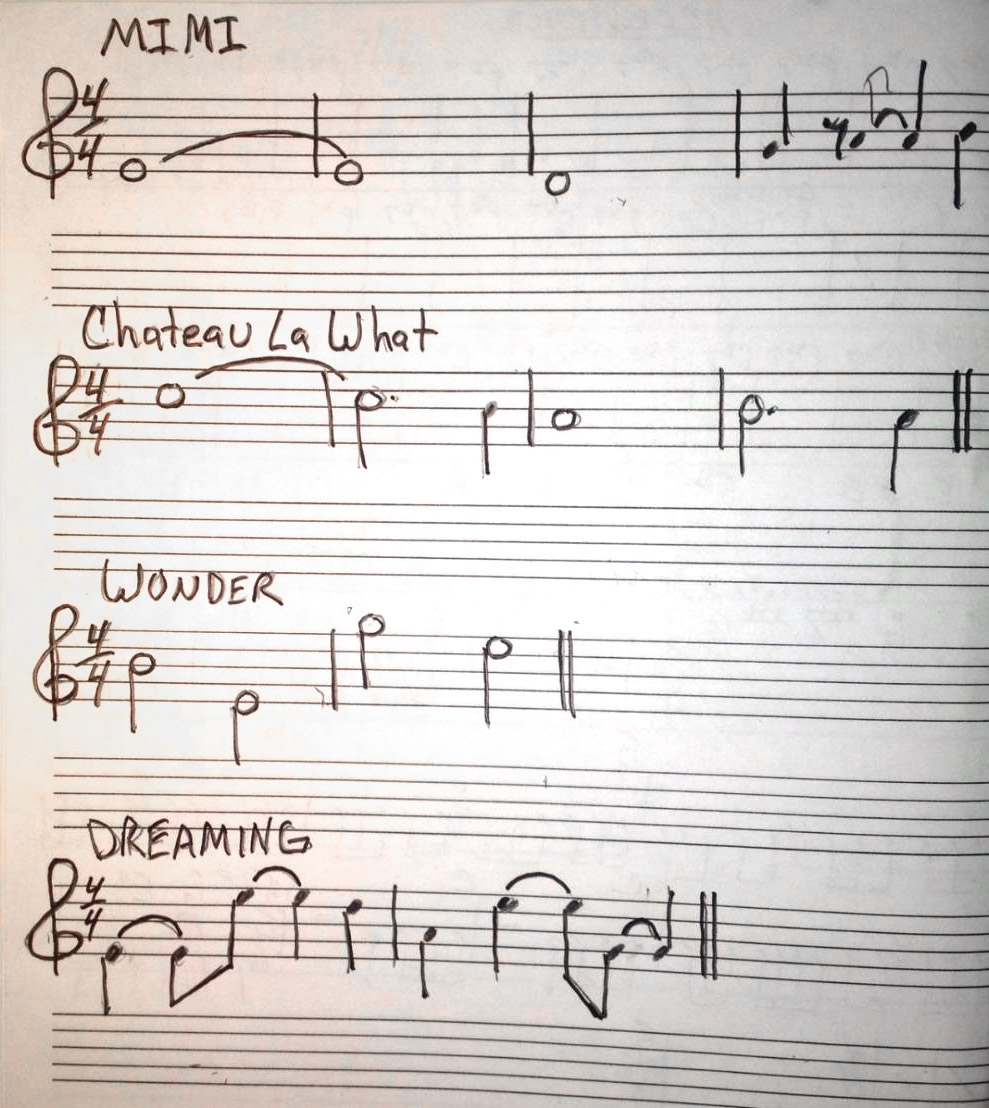 MIMI
4
4
Chateau La What
4
4
WONDER
4
4
DREAMING
4
4